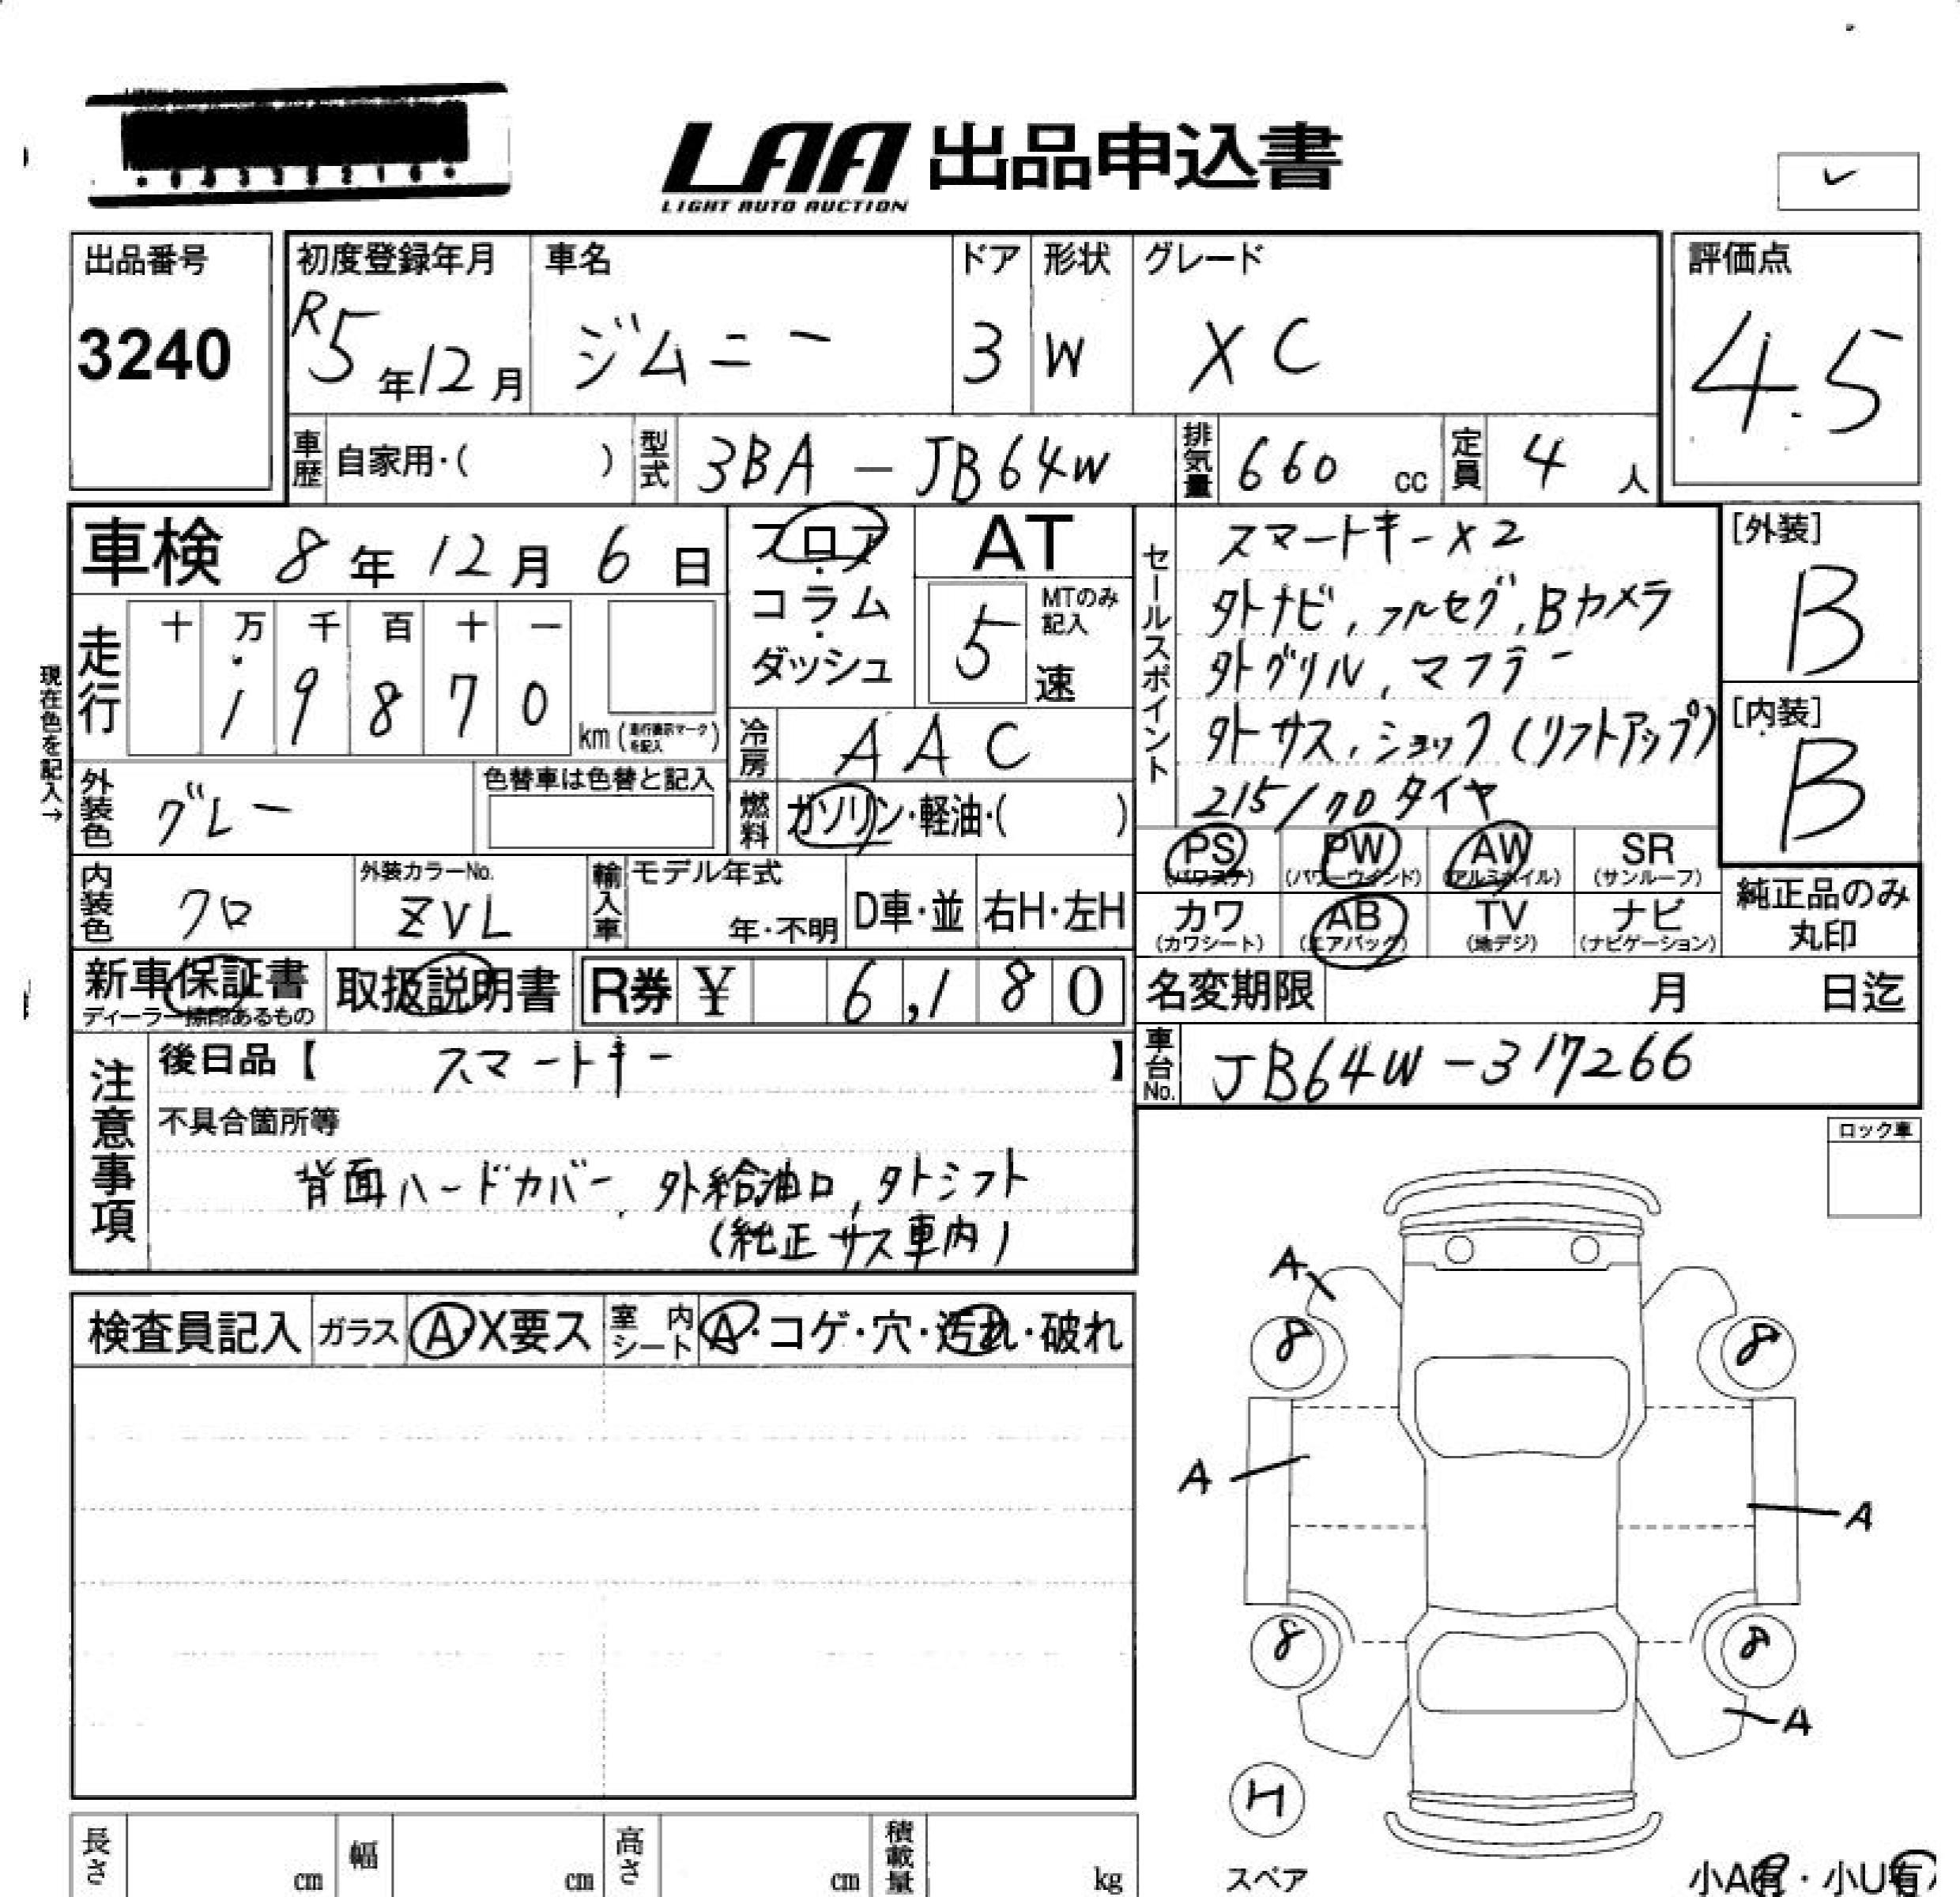 LAA 出品申込書
LIGHT AUTO AUCTION
出品番号
3240
初度登録年月
R5年12月
車名
ジムニー
ドア
3
形状
W
グレード
XC
評価点
4.5
車歴 自家用・( )
型式 3BA-JB64W
排気量 660 cc
定員 4 人
車検 8年12月6日
フロア・コラム・ダッシュ
AT
5速
MTのみ記入
現在色を記入→
走行
十 万 千 百 十 一
1 9 8 7 0
km(走行表示マークを記入)
冷房 AAC
外装色 グレー
色替車は色替と記入
燃料 ガソリン・軽油・( )
内装色 クロ
外装カラーNo.
ZVL
輸入車
モデル年式
年・不明
D車・並
右H・左H
新車保証書
ディーラー捺印あるもの
取扱説明書
R券 ¥ 6,180
セールスポイント
スマートキー×2
外ナビ,フルセグ,Bカメラ
外グリル,マフラー
外サス,ショック(リフトアップ)
215/70タイヤ
[外装]
B
[内装]
B
PS
(パワステ)
PW
(パワーウインド)
AW
(アルミホイル)
SR
(サンルーフ)
カワ
(カワシート)
AB
(エアバック)
TV
(地デジ)
ナビ
(ナビゲーション)
純正品のみ
丸印
名変期限 月 日迄
車台No. JB64W-317266
注意事項
後日品【 スマートキー 】
不具合箇所等
背面ハードカバー,外給油口,外シフト
(純正サス車内)
ロック車
検査員記入
ガラス A・X要ス
室内シート A・コゲ・穴・汚れ・破れ
A
8 8
A
A
8 8
A
H
スペア
小A有・小U有
長さ cm
幅 cm
高さ cm
積載量 kg